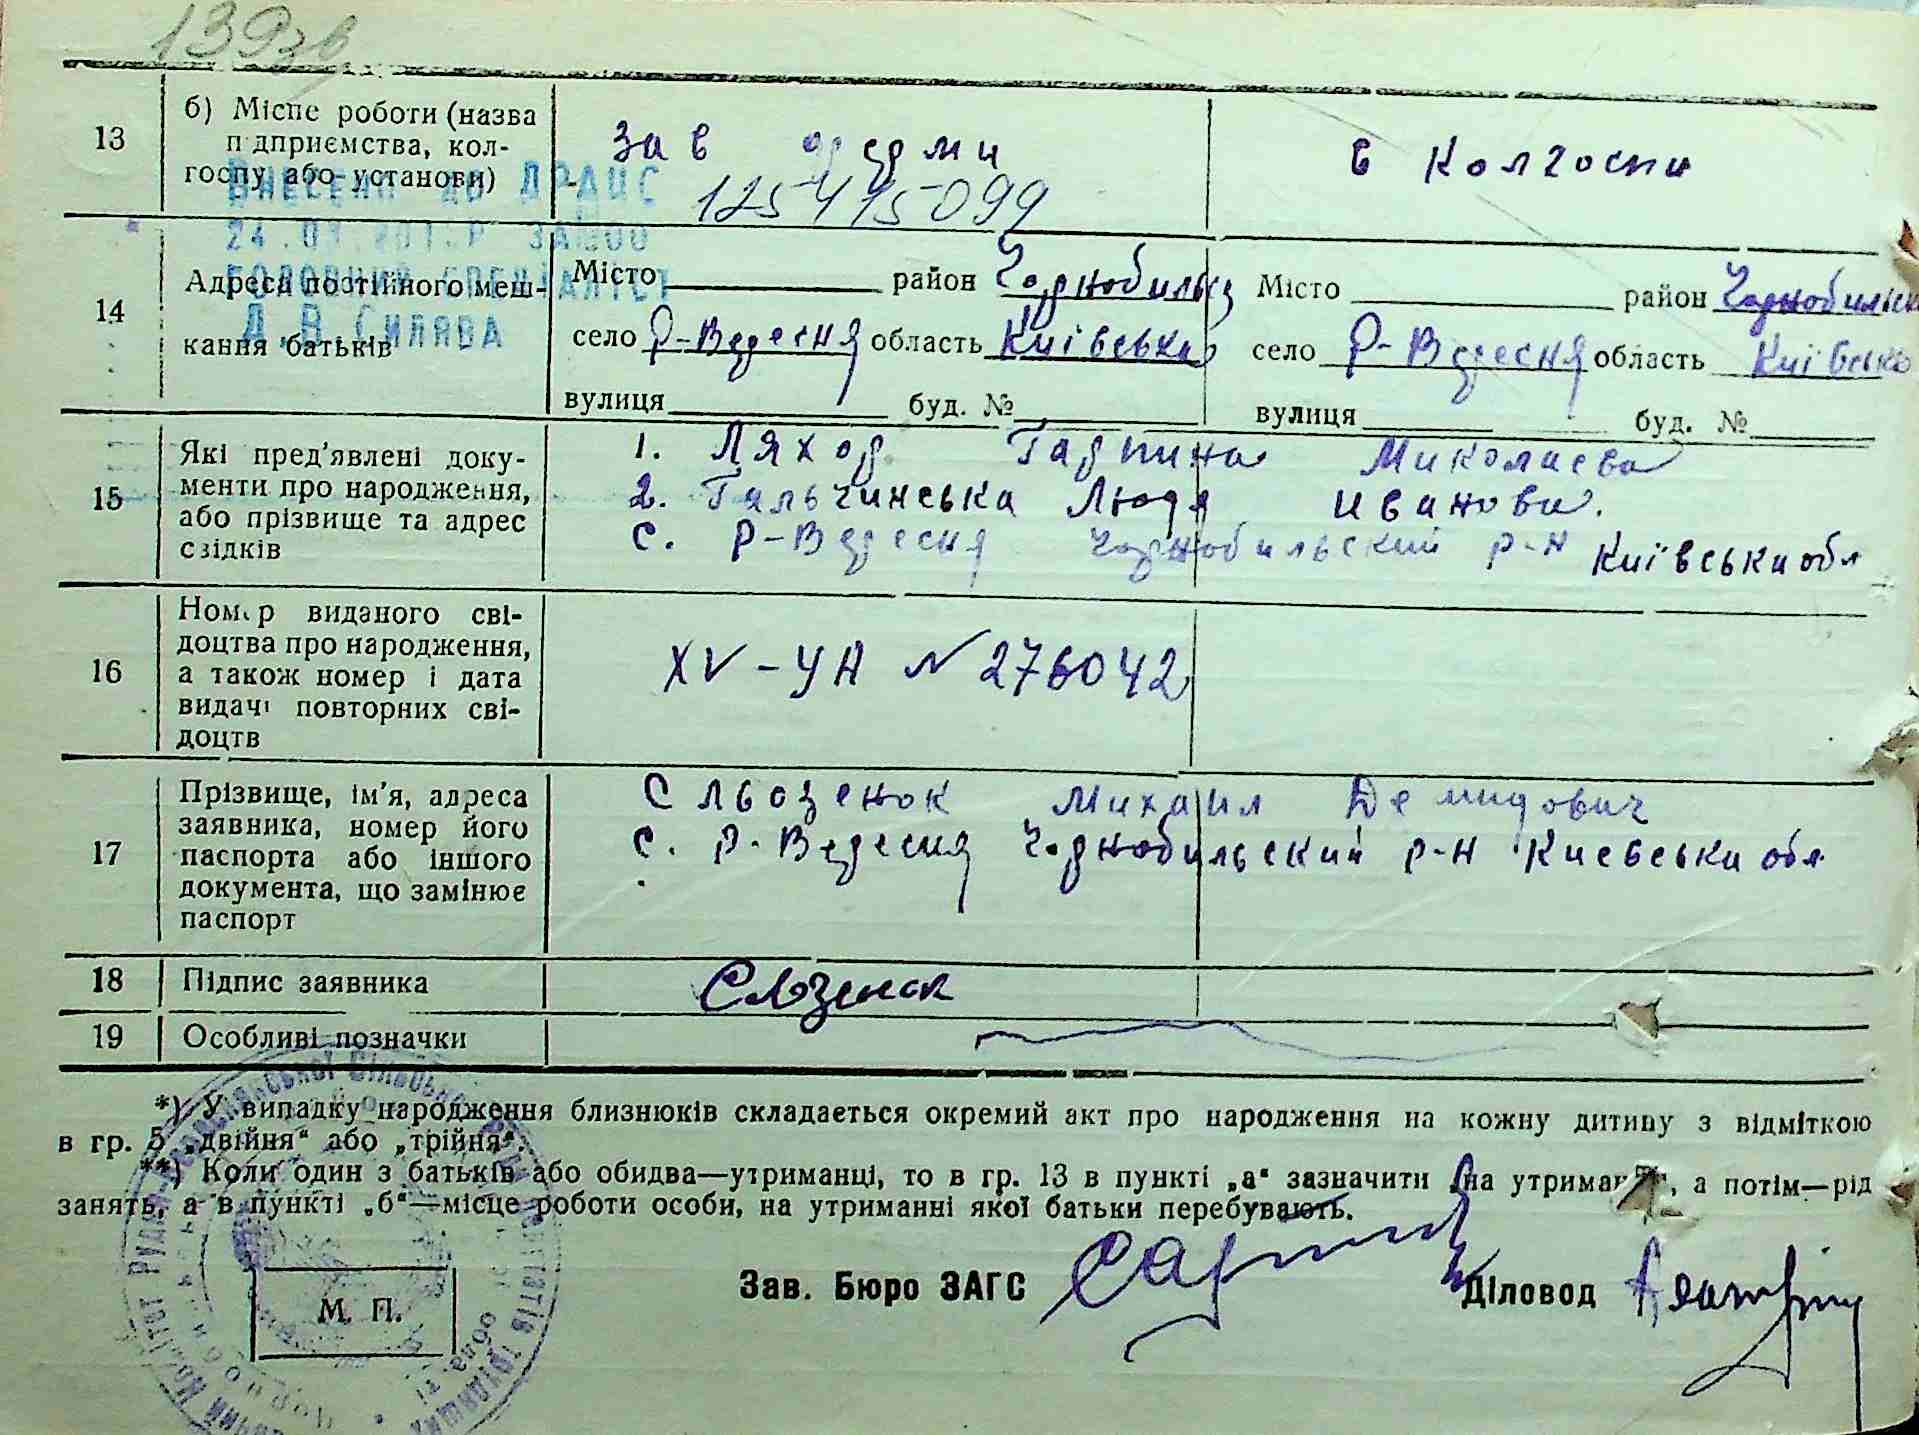 139зв
13
б) Місце роботи (назва
підприємства, кол-
госпу або установи)
зав
в колгоспи
125415099
ВНЕСЕНО ДО ДРАЦС
ГОЛОВНИЙ СПЕЦІАЛІСТ
14
Адреса постійного меш-
кання батьків
Місто район Чорнобильськ
село Р-Вересня область Київська
вулиця буд. №
Місто район Чорнобильськ
село Р-Вересня область Київська
вулиця буд. №
15
Які пред'явлені доку-
менти про народження,
або прізвище та адрес
свідків
1. Миколаєва
2. Гальчинська Людя Ивановн.
с. Р-Вересня Чорнобильский р-н Київська обл
16
Номер виданого сві-
доцтва про народження,
а також номер і дата
видачі повторних сві-
доцтв
XV-УН № 276042
17
Прізвище, ім'я, адреса
заявника, номер його
паспорта або іншого
документа, що замінює
паспорт
Сльозенок Михаил Демидович
с. Р-Вересня Чорнобильский р-н Киевська обл
18
Підпис заявника
Сльозенок
19
Особливі позначки
*) У випадку народження близнюків складається окремий акт про народження на кожну дитину з відміткою
в гр. 5 „двійня“ або „трійня“.
**) Коли один з батьків або обидва—утриманці, то в гр. 13 в пункті „а“ зазначити „на утриманні“, а потім—рід
занять, а в пункті „б“—місце роботи особи, на утриманні якої батьки перебувають.
М. П.
Зав. Бюро ЗАГС
Діловод